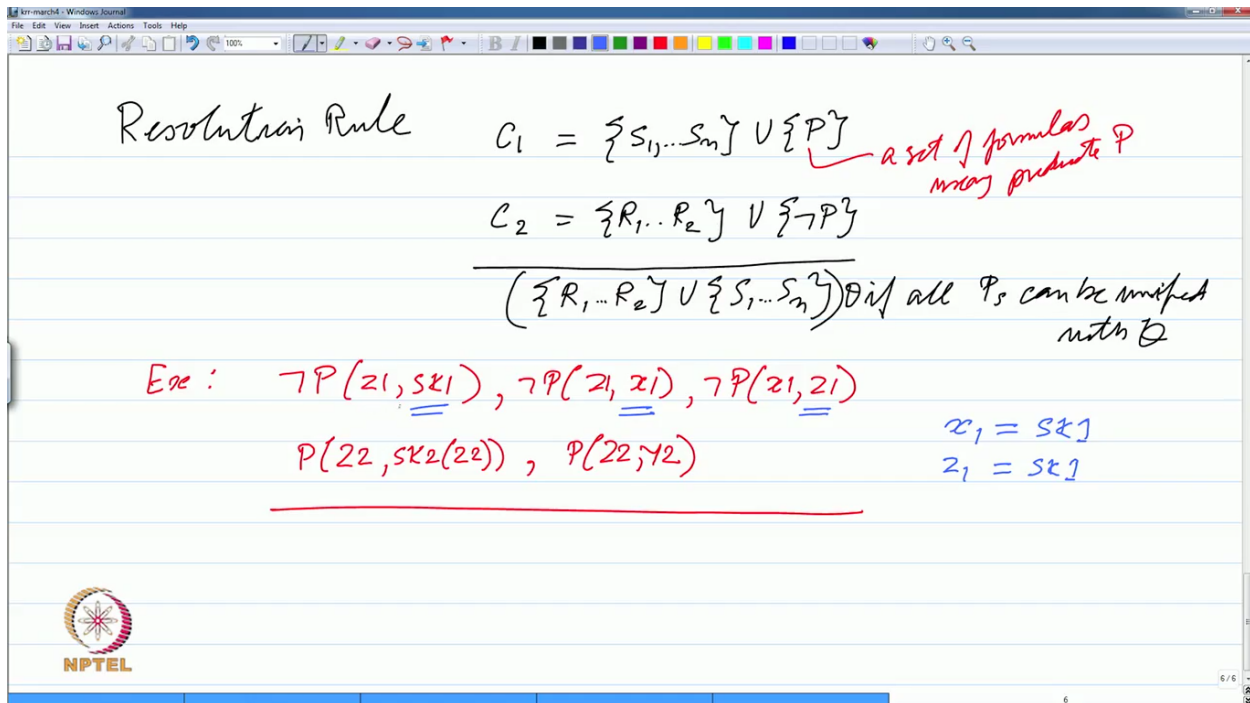 krr-march4 - Windows Journal
File Edit View Insert Actions Tools Help
100%
B I
Resolution Rule
C1 = {S1,...Sn} U {P}
a set of formulas
using predicate P
C2 = {R1..R2} U {¬P}
({R1...R2} U {S1...Sn})θ if all Ps can be unified
with θ
Exe: ¬P(z1, sk1), ¬P(z1, x1), ¬P(x1, z1)
x1 = sk1
P(z2, sk2(z2)), P(z2, y2)
z1 = sk1
NPTEL
6/6
6